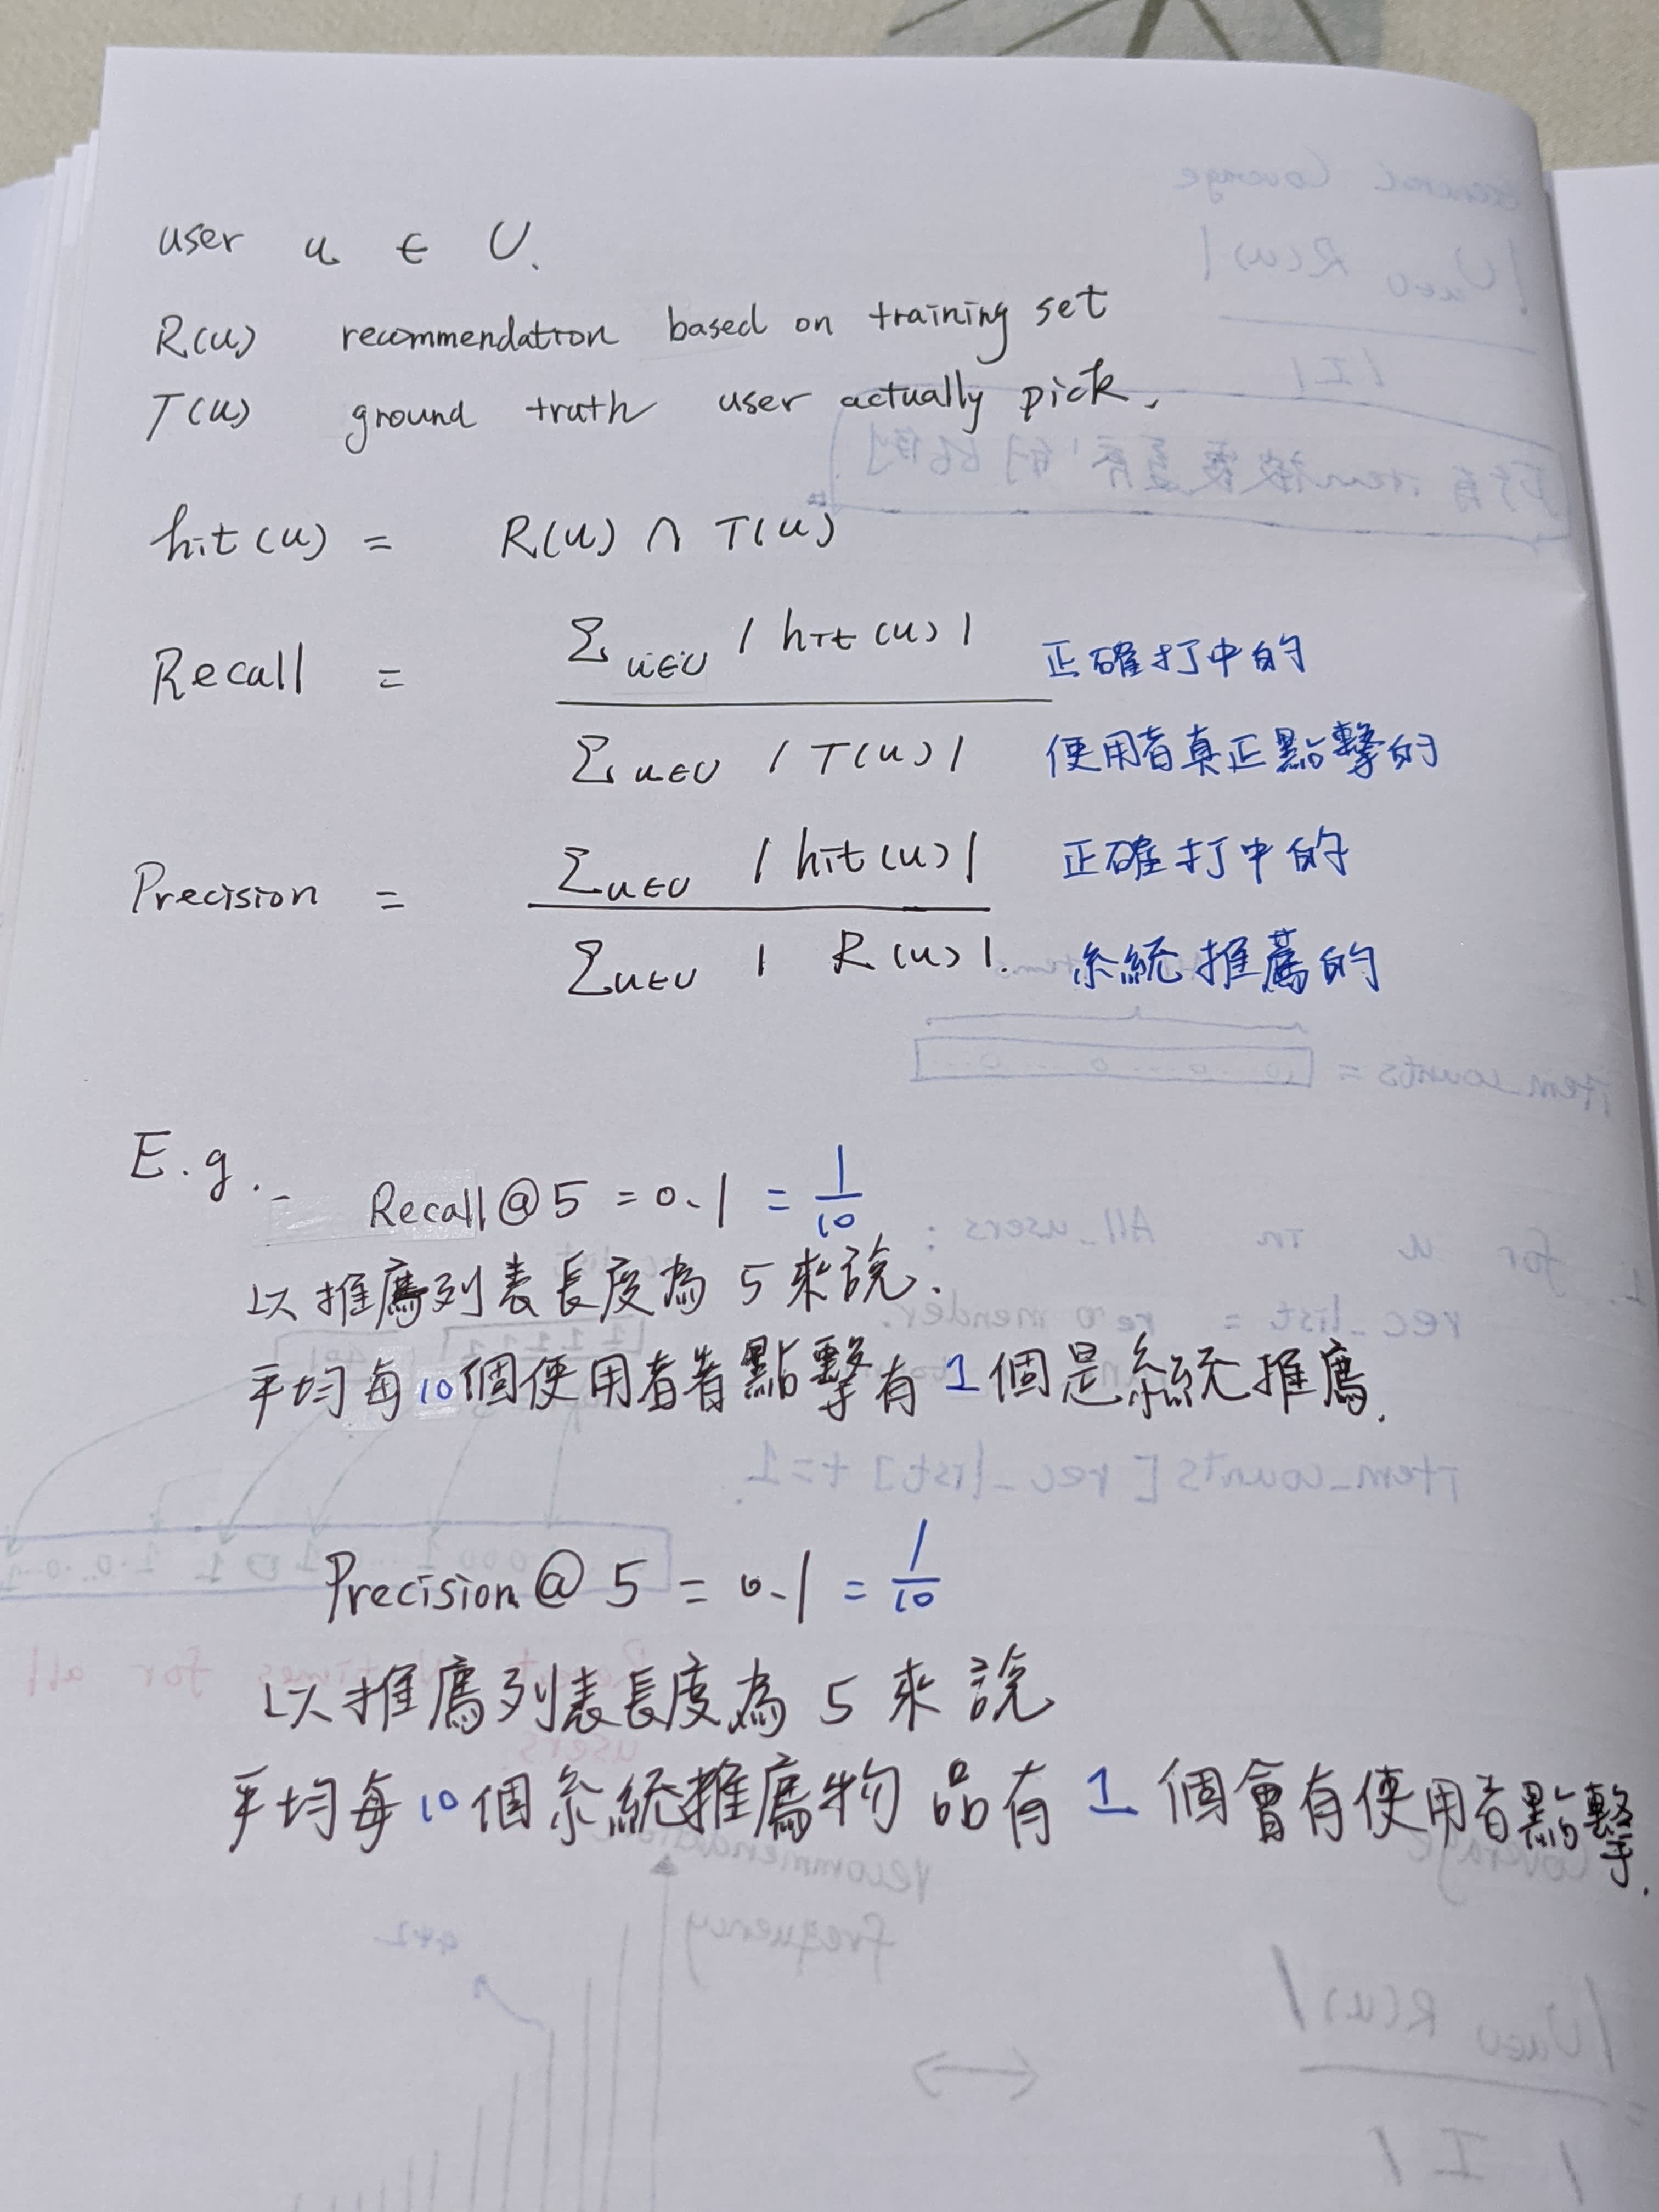 user u ∈ U.
R(u) recommendation based on training set
T(u) ground truth user actually pick.
hit(u) = R(u) ∩ T(u)
Recall = Σ u∈U |hit(u)| 正確打中的
Σ u∈U |T(u)| 使用者真正點擊的
Precision = Σ u∈U |hit(u)| 正確打中的
Σ u∈U |R(u)|. 系統推薦的
E.g.
Recall@5 = 0.1 = 1/10
以推薦列表長度為 5 來說.
平均每10個使用者點擊有 1 個是系統推薦.
Precision@5 = 0.1 = 1/10
以推薦列表長度為 5 來說
平均每10個系統推薦物品有 1 個會有使用者點擊.